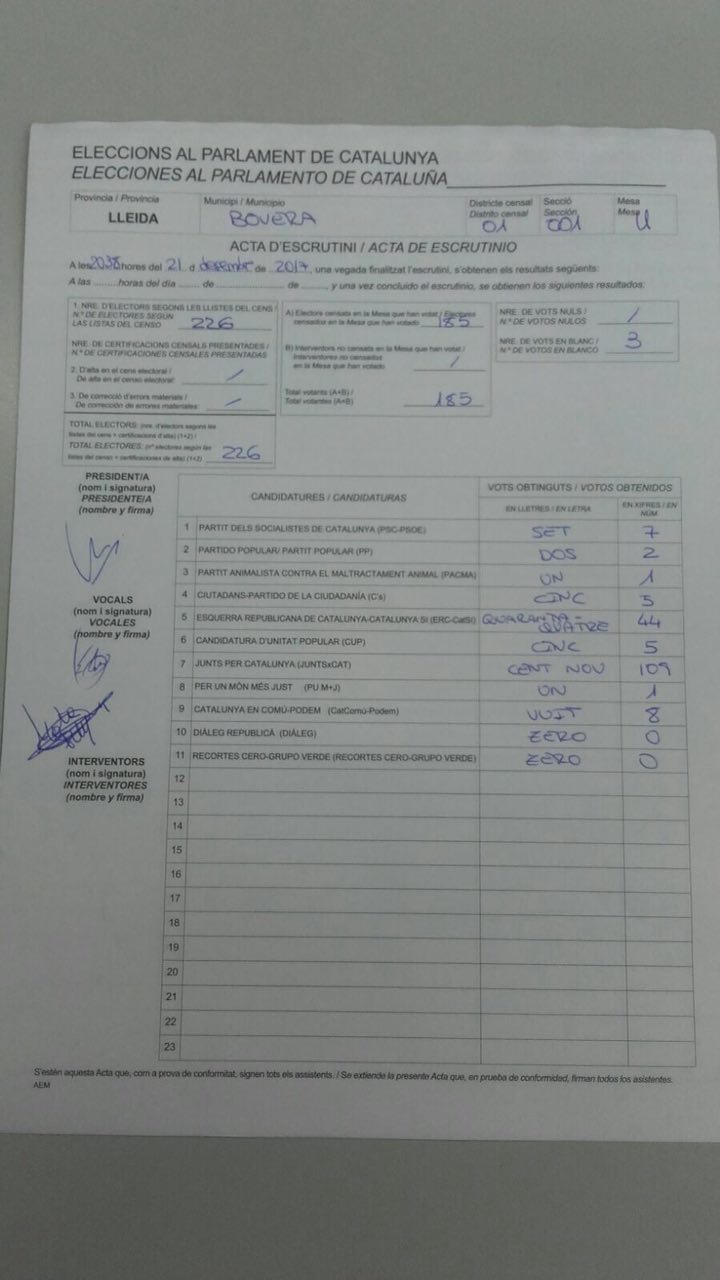 ELECCIONS AL PARLAMENT DE CATALUNYA
ELECCIONES AL PARLAMENTO DE CATALUÑA
Provincia / Provincia
LLEIDA
Municipi / Municipio
BOVERA
Districte censal
Distrito censal
01
Secció
Sección
001
Mesa
Mesa
U
ACTA D'ESCRUTINI / ACTA DE ESCRUTINIO
A les 2038 hores del 21 d desembre de 2017, una vegada finalitzat l'escrutini, s'obtenen els resultats següents:
A las ......... horas del día ....... de ................. de ........, y una vez concluido el escrutinio, se obtienen los siguientes resultados:
1. NRE. D'ELECTORS SEGONS LES LLISTES DEL CENS /
N.º DE ELECTORES SEGÚN
LAS LISTAS DEL CENSO 226
NRE. DE CERTIFICACIONS CENSALS PRESENTADES /
N.º DE CERTIFICACIONES CENSALES PRESENTADAS
2. D'alta en el cens electoral /
De alta en el censo electoral: /
3. De correcció d'errors materials /
De corrección de errores materiales: /
TOTAL ELECTORS: (nre. d'electors segons les
llistes del cens + certificacions d'alta) (1+2) /
TOTAL ELECTORES: (nº electores según las
listas del censo + certificaciones de alta) (1+2) 226
A) Electors censats en la Mesa que han votat / Electores
censados en la Mesa que han votado 185
B) Interventors no censats en la Mesa que han votat /
Interventores no censados
en la Mesa que han votado /
Total votants (A+B) /
Total votantes (A+B) 185
NRE. DE VOTS NULS /
N.º DE VOTOS NULOS /
NRE. DE VOTS EN BLANC /
N.º DE VOTOS EN BLANCO 3
PRESIDENT/A
(nom i signatura)
PRESIDENTE/A
(nombre y firma)
VOCALS
(nom i signatura)
VOCALES
(nombre y firma)
INTERVENTORS
(nom i signatura)
INTERVENTORES
(nombre y firma)
CANDIDATURES / CANDIDATURAS
VOTS OBTINGUTS / VOTOS OBTENIDOS
EN LLETRES / EN LETRA
EN XIFRES / EN
NÚM
1 PARTIT DELS SOCIALISTES DE CATALUNYA (PSC-PSOE) SET 7
2 PARTIDO POPULAR/ PARTIT POPULAR (PP) DOS 2
3 PARTIT ANIMALISTA CONTRA EL MALTRACTAMENT ANIMAL (PACMA) UN 1
4 CIUTADANS-PARTIDO DE LA CIUDADANÍA (C's) CINC 5
5 ESQUERRA REPUBLICANA DE CATALUNYA-CATALUNYA SÍ (ERC-CatSí) QUARANTA-QUATRE 44
6 CANDIDATURA D'UNITAT POPULAR (CUP) CINC 5
7 JUNTS PER CATALUNYA (JUNTSxCAT) CENT NOU 109
8 PER UN MÓN MÉS JUST (PU M+J) UN 1
9 CATALUNYA EN COMÚ-PODEM (CatComú-Podem) VUIT 8
10 DIÀLEG REPUBLICÀ (DIÀLEG) ZERO 0
11 RECORTES CERO-GRUPO VERDE (RECORTES CERO-GRUPO VERDE) ZERO 0
12
13
14
15
16
17
18
19
20
21
22
23
S'estén aquesta Acta que, com a prova de conformitat, signen tots els assistents. / Se extiende la presente Acta que, en prueba de conformidad, firman todos los asistentes.
AEM